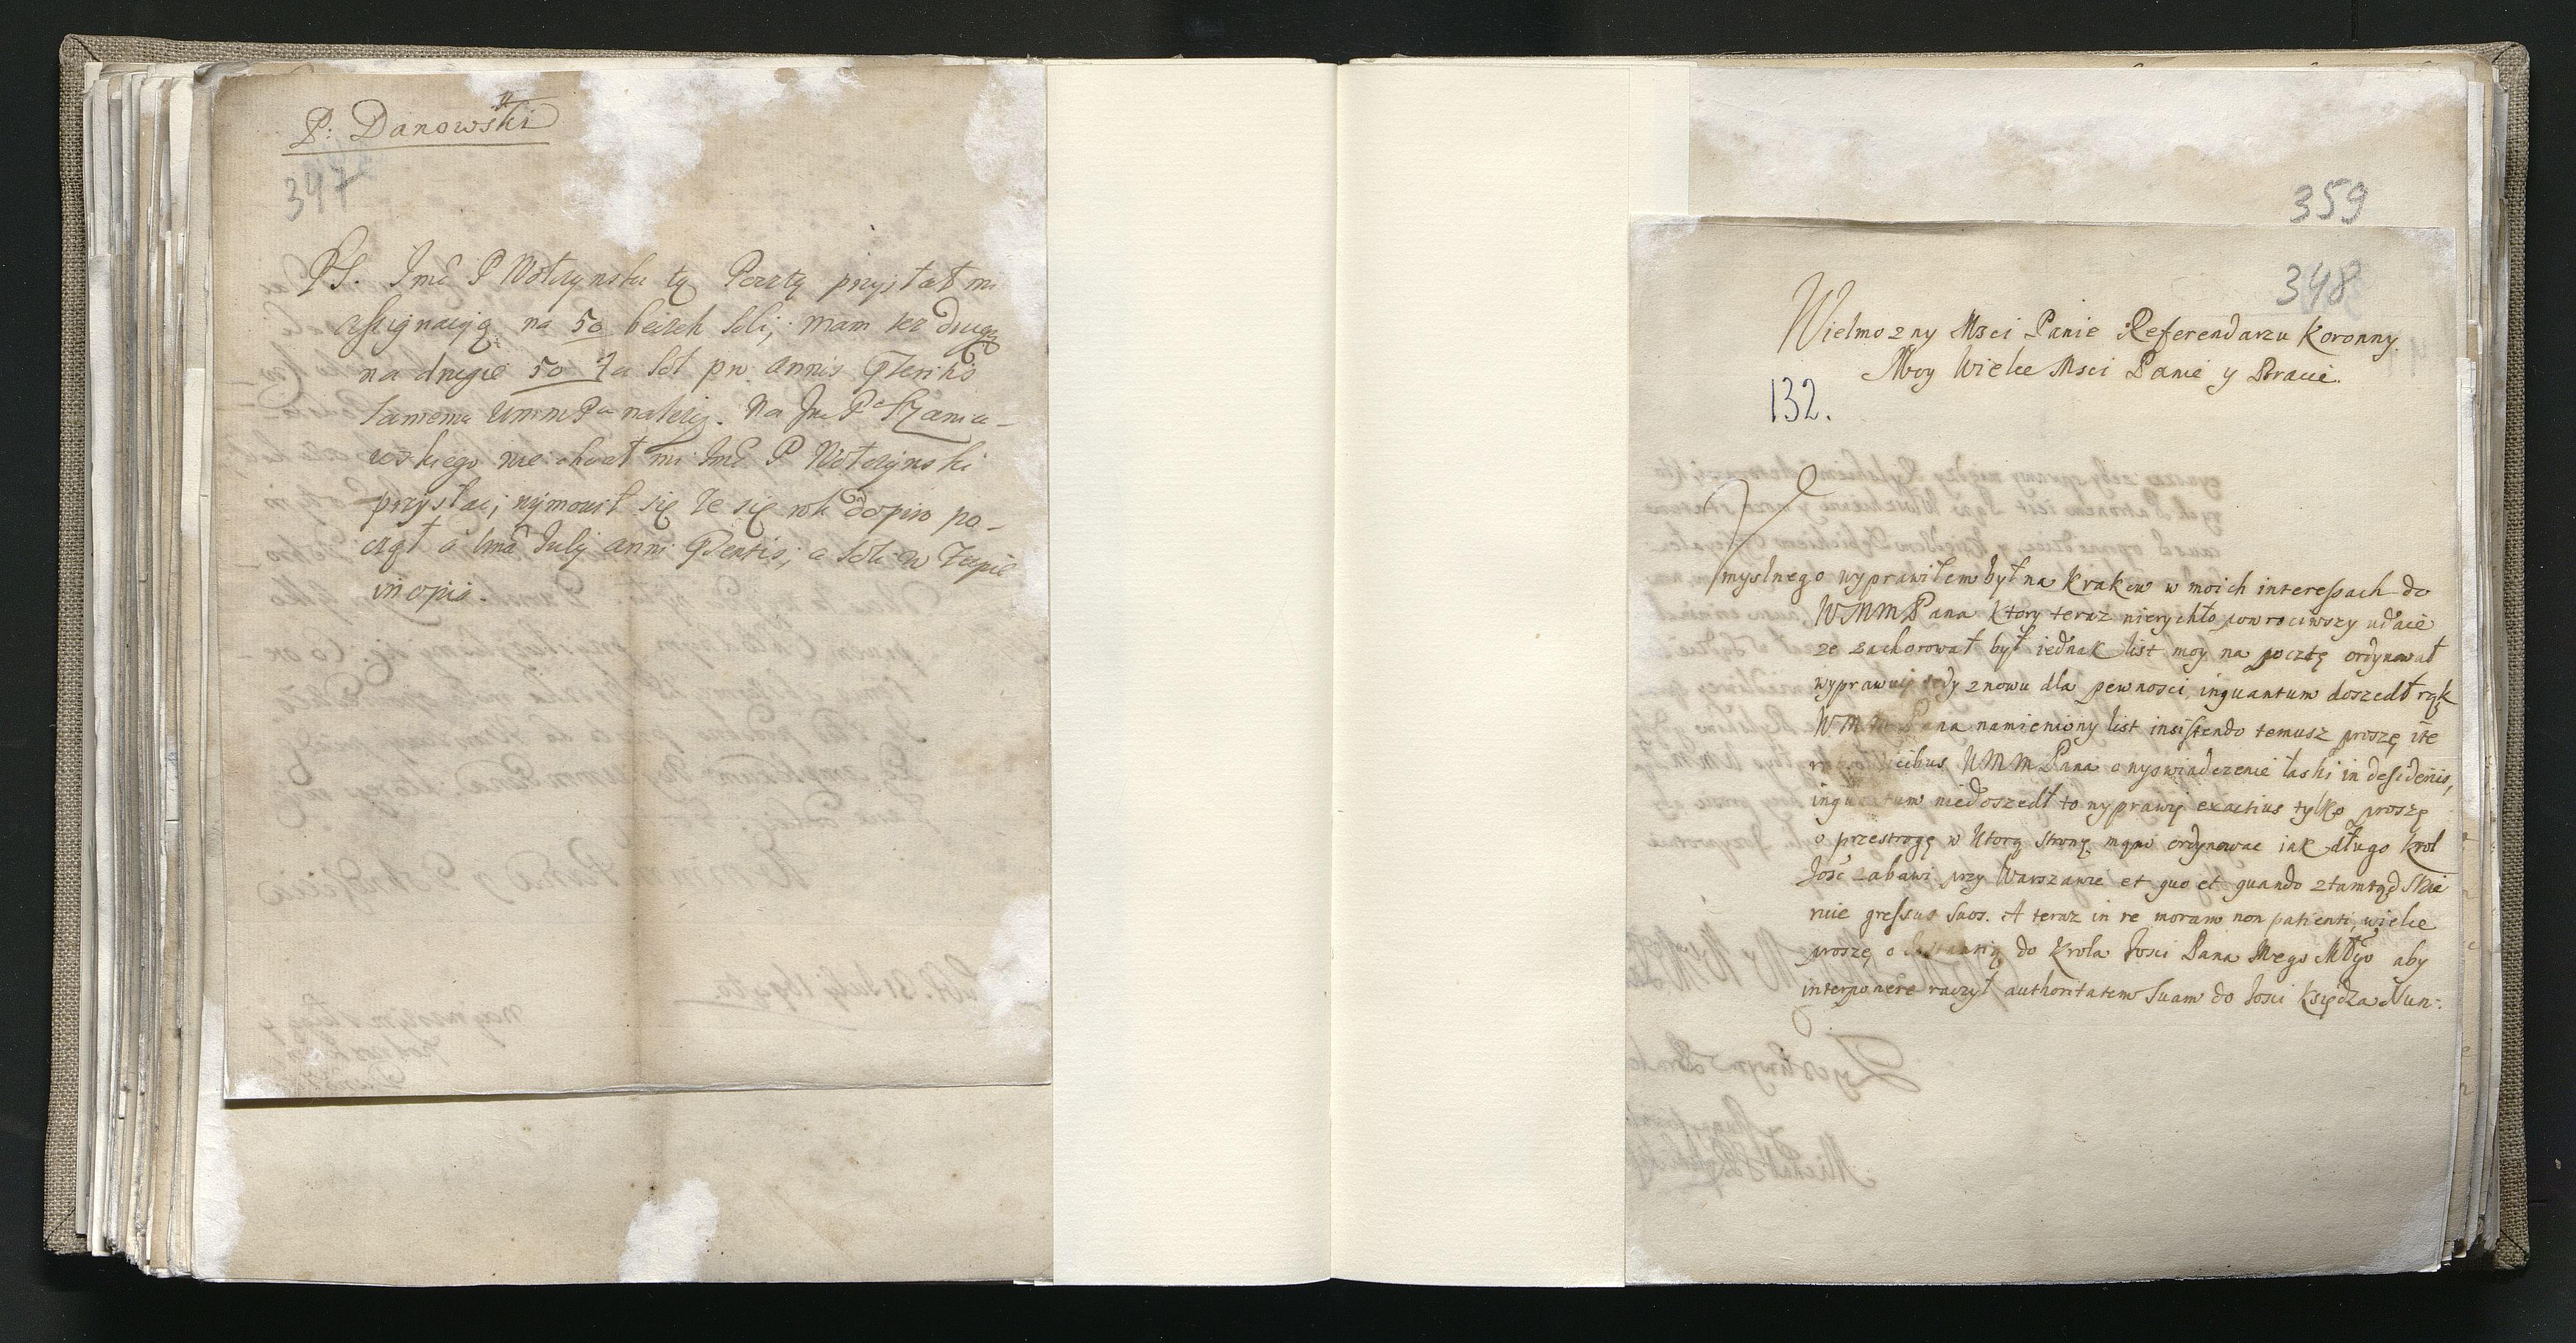 P: Danowski
347
PS. Imć P Wołczynski tą Pocztą przysłał mi
assignacyą na 50 beczek soli, mam też drugą
na drugie 50 Za sol pro annis
samemu WMM Pu należy. Na Jm Pa Szania-
wskiego nie chciał mi Imć P Wołczynski
przysłac, wymowił się że się rok dopiro po-
czął a 1ma July anni, a soli w Zupie
inopia.
359
348
Wielmozny Msci Panie Referendarzu Koronny.
Moy Wielce Msci Panie y Bracie.
132.
Umyslnego wyprawiłem był na Krakow w moich interessach do
WMMPana ktory teraz nierychło powrociwszy udaie
ze zachorował był iednak list moy na pocztę ordynował
wyprawuię tedy znowu dla pewnosci, inquantum doszedł rąk
WMMPana namieniony list insistendo temusz proszę ite
WMMPana o wyswiadczenie łaski in desiderijs,
inquantum niedoszedł to wyprawię exactius tylko proszę
o przestrogę w ktorą stronę mam ordynowac iak długo Krol
Jośc zabawi przy Warszawie et quo et quando ztamtąd Skie
ruie gressus suos. A teraz in re moram non patienti, wielce
proszę o do Krola Josci Pana Mego Młgo aby
interponere raczył authoritatem suam do Josci Księdza Nun: